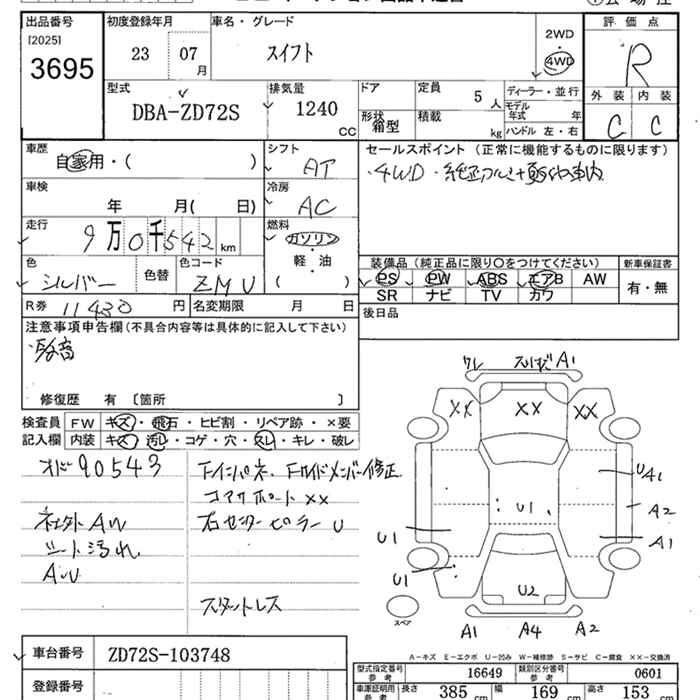 出品番号
[2025]
3695
初度登録年月
23 07月
車名・グレード
スイフト
2WD
・
4WD
評価点
R
外装 内装
C C
型式
DBA-ZD72S
排気量
1240 CC
ドア
形状
箱型
定員
5人
積載
kg
ディーラー・並行
モデル年式 年
ハンドル 左・右
車歴
自家用・( )
シフト
AT
車検
年 月( 日)
冷房
AC
走行
9万0千542km
燃料
ガソリン
軽・油
( )
色
シルバー
色替
色コード
ZMU
R券 11430円
名変期限 月 日
セールスポイント (正常に機能するものに限ります)
装備品 (純正品に限り○をつけてください)
PS PW ABS エアB AW
SR ナビ TV カワ
新車保証書
有・無
後日品
注意事項申告欄(不具合内容等は具体的に記入して下さい)
修復歴 有 〔箇所 〕
検査員記入欄
FW キズ・飛石・ヒビ割・リペア跡・×要
内装 キズ・汚れ・コゲ・穴・スレ・キレ・破レ
オド90543
シート汚れ
右センターピラー U
スタットレス
ワレ A1
XX XX XX
U1
UA1
A2
A1
U1
U1
U2
スペア
A1 A4 A2
車台番号 ZD72S-103748
登録番号
A-キズ E-エクボ U-凹み W-補修跡 S-サビ C-腐食 ××-交換済
型式指定番号 参考 16649
類別区分番号 参考 0601
車庫証明用 参考 長さ 385 cm 幅 169 cm 高さ 153 cm